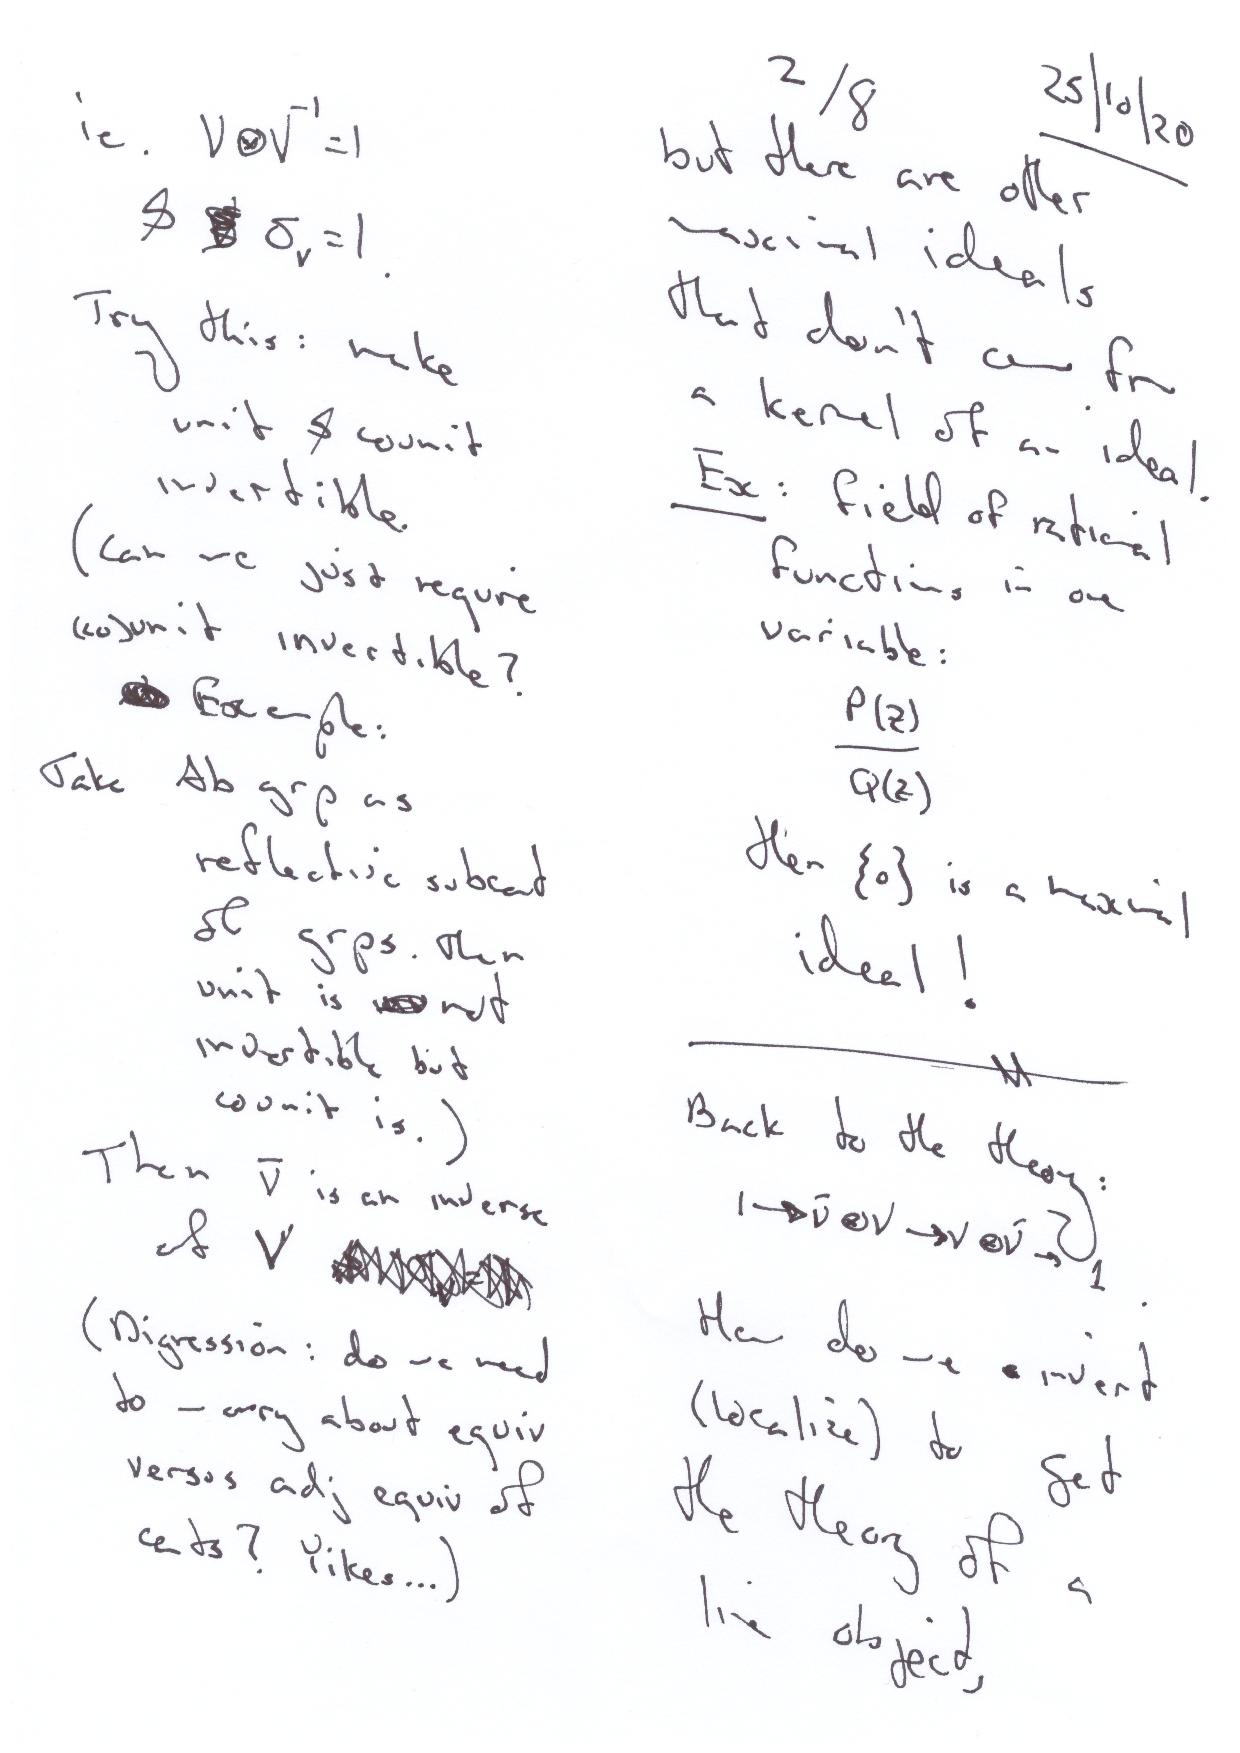 2/8
25/10/20
ie. V⊗V⁻¹=1
& σ_v=1.
Try this: make
unit & counit
invertible.
(Can we just require
(co)unit invertible?
Example:
Take Ab grp as
reflective subcat
of grps. Then
unit is not
invertible but
counit is.)
Then V̄ is an inverse
of V
(Digression: do we need
to worry about equiv
versus adj equiv of
cats? Yikes...)
but there are other
maximal ideals
that don't come from
a kernel of an ideal.
Ex: field of rational
functions in one
variable:
P(z)
Q(z)
then {0} is a maximal
ideal!
Back to the theory:
1→V̄⊗V→V⊗V̄→1
How do we invert
(localize) to get
the theory of a
line object,